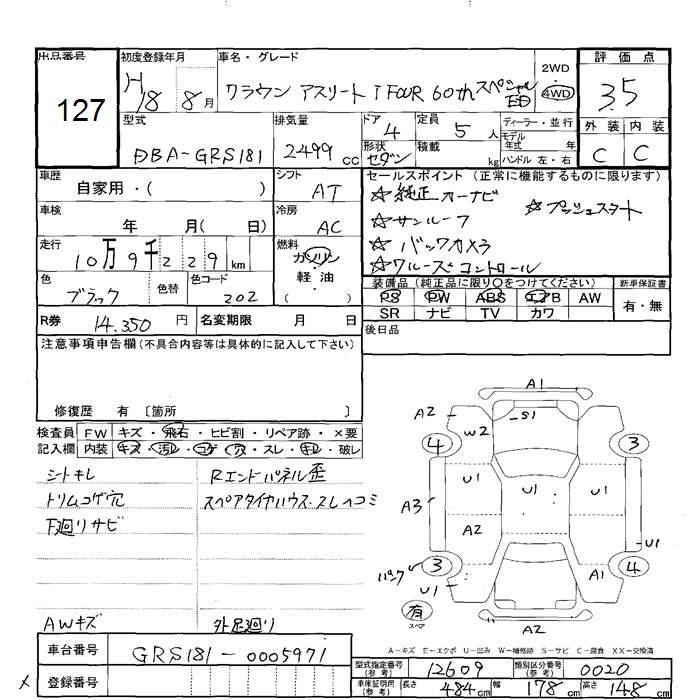 出品番号
127
初度登録年月
H18 8月
車名・グレード
クラウン アスリート i FOUR 60th スペシャル
2WD
4WD
評価点
3.5
外装 内装
C C
型式
DBA-GRS181
排気量
2499 cc
ドア
4
形状
セダン
定員
5人
積載
kg
ディーラー・並行
モデル
年式 年
ハンドル 左・右
車歴
自家用・( )
シフト
AT
車検
年 月( 日)
冷房
AC
走行
10万9千229km
燃料
ガソリン
軽・油
( )
色
ブラック
色替
色コード
202
セールスポイント (正常に機能するものに限ります)
☆純正カーナビ
☆プッシュスタート
☆サンルーフ
☆バックカメラ
☆クルーズコントロール
装備品 (純正品に限り○をつけてください)
PS PW ABS エアB AW
SR ナビ TV カワ
新車保証書
有・無
R券
14,350円
名変期限 月 日
後日品
注意事項申告欄(不具合内容等は具体的に記入して下さい)
修復歴 有 〔箇所 〕
検査員
記入欄
FW キズ・飛石・ヒビ割・リペア跡・×要
内装 キズ・汚レ・コゲ・穴・スレ・キレ・破レ
シートキレ
トリムコゲ穴
下廻りサビ
AWキズ
Rエンドパネル歪
スペアタイヤハウススレヘコミ
外足廻り
A1
A2
S1
W2
4
3
U1
U1
U1
A3
A2
U1
3
4
パンク
U1
A1
有
スペア
A2
A-キズ E-エクボ U-凹み W-補修跡 S-サビ C-腐食 XX-交換済
車台番号
GRS181-0005971
登録番号
型式指定番号
(参考)
12609
類別区分番号
(参考)
0020
車庫証明用
(参考)
長さ 484cm
幅 178cm
高さ 148cm